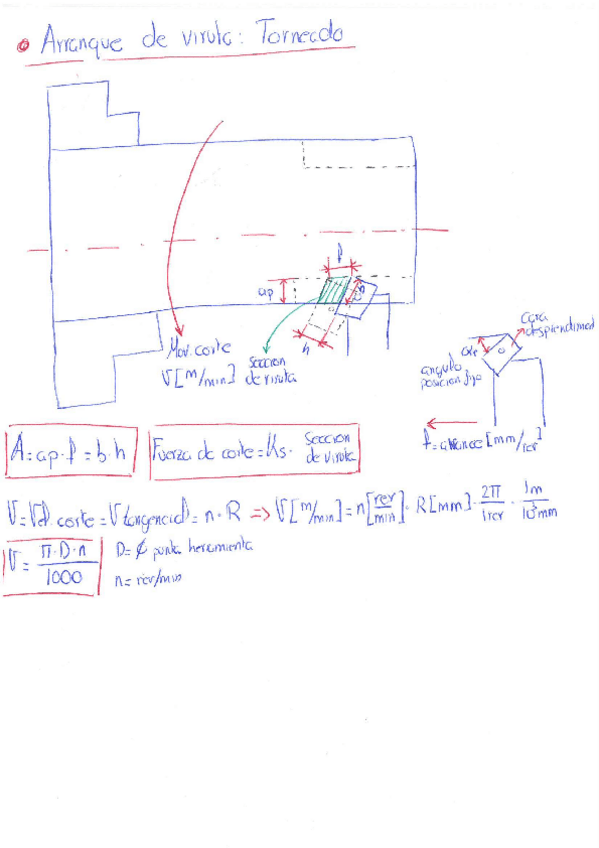 Arranque de viruta: Torneado
f
ap
b
h
Mov. corte
V [m/min]
Sección
de viruta
Cara
desprendimied
ángulo
posicion fijo
f = avance [mm/rev]
A = ap · f = b · h
Fuerza de corte = Ks · Seccion de viruta
V = Vel. corte = V tangencial = n · R ⇒ V [m/min] = n [rev/min] · R [mm] · 2π/1rev · 1m/10³mm
V = π·D·n/1000
D = ϕ punta herramienta
n = rev/min